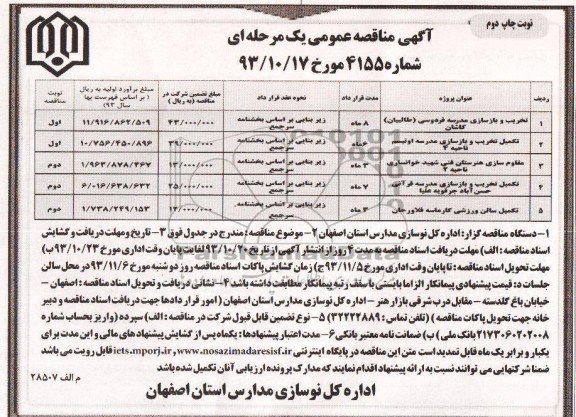 نوبت چاپ دوم
آگهی مناقصه عمومی یک مرحله ای
شماره ۴۱۵۵ مورخ ۹۳/۱۰/۱۷
ردیف عنوان پروژه مدت قرار داد نحوه عقد قرار داد مبلغ تضمین شرکت در مناقصه (به ریال) مبلغ برآورد اولیه به ریال ( بر اساس فهرست بها سال ۹۳) نوبت مناقصه
۱ تخریب و بازسازی مدرسه فردوسی (طالبیان) کاشان ۸ ماه زیر بنایی بر اساس بخشنامه سرجمع ۴۳/۰۰۰/۰۰۰ ۱۱/۹۱۶/۸۶۲/۵۰۹ اول
۲ تکمیل تخریب و بازسازی مدرسه اوتیسم ناحیه ۴ زیر بنایی بر اساس بخشنامه سرجمع ۳۹/۰۰۰/۰۰۰ ۱۰/۷۵۶/۴۵۰/۸۹۶ اول
۳ مقاوم سازی هنرستان فنی شهید خوانساری ناحیه ۲ ۳ ماه زیر بنایی بر اساس بخشنامه سرجمع ۱۳/۰۰۰/۰۰۰ ۱/۹۶۳/۸۷۸/۴۶۷ دوم
۴ تکمیل تخریب و بازسازی مدرسه قرآنی حسن آباد جرقویه علیا ۷ ماه زیر بنایی بر اساس بخشنامه سرجمع ۲۵/۰۰۰/۰۰۰ ۶/۰۱۶/۶۳۸/۶۳۲ دوم
۵ تکمیل سالن ورزشی کارماسه فلاورجان ۳ ماه زیر بنایی بر اساس بخشنامه سرجمع ۱۲/۰۰۰/۰۰۰ ۱/۷۳۸/۲۴۹/۱۵۳ دوم
۱- دستگاه مناقصه گزار: اداره کل نوسازی مدارس استان اصفهان ۲- موضوع مناقصه: مندرج در جدول فوق ۳- تاریخ ومهلت دریافت و گشایش
اسناد مناقصه: الف) مهلت دریافت اسناد مناقصه به مدت ۴ روز از انتشار آگهی از تاریخ ۹۳/۱۰/۲۰ لغایت پایان وقت اداری مورخ ۹۳/۱۰/۲۳ ب)
مهلت تحویل اسناد مناقصه: تا پایان وقت اداری مورخ ۹۳/۱۱/۵ ج) زمان گشایش پاکات اسناد مناقصه روز دو شنبه مورخ ۹۳/۱۱/۶ در محل سالن
جلسات د: قیمت پیشنهادی پیمانکار الزاما بایستی با سقف رتبه پیمانکار مطابقت داشته باشد ۴- نشانی دریافت و تحویل اسناد مناقصه: اصفهان -
خیابان باغ گلدسته - مقابل درب شرقی بازار هنر - اداره کل نوسازی مدارس استان اصفهان (امور قرار دادها جهت دریافت اسناد مناقصه و دبیر
خانه جهت تحویل پاکات مناقصه) (تلفن تماس: ۳۲۲۲۲۸۸۹) ۵- نوع تضمین قابل قبول شرکت در مناقصه: الف) سپرده (واریز بحساب شماره
۲۱۷۳۰۶۰۲۰۲۰۰۸ بانک ملی) ب) ضمانت نامه معتبر بانکی ۶- مدت اعتبار پیشنهادها: یکماه پس از گشایش پیشنهاد های مالی و این مدت برای
یکبار و برابر یک ماه قابل تمدید است متن این مناقصه در پایگاه اینترنتی www.nosazimadaresisf.ir و iets.mporj.ir قابل رویت می باشد
ضمنا شرکتهایی می توانند نسبت به ارائه پیشنهاد اقدام نمایند که مدارک پرونده ارزیابی آنان تکمیل شده باشد
م الف ۲۸۵۰۷
اداره کل نوسازی مدارس استان اصفهان